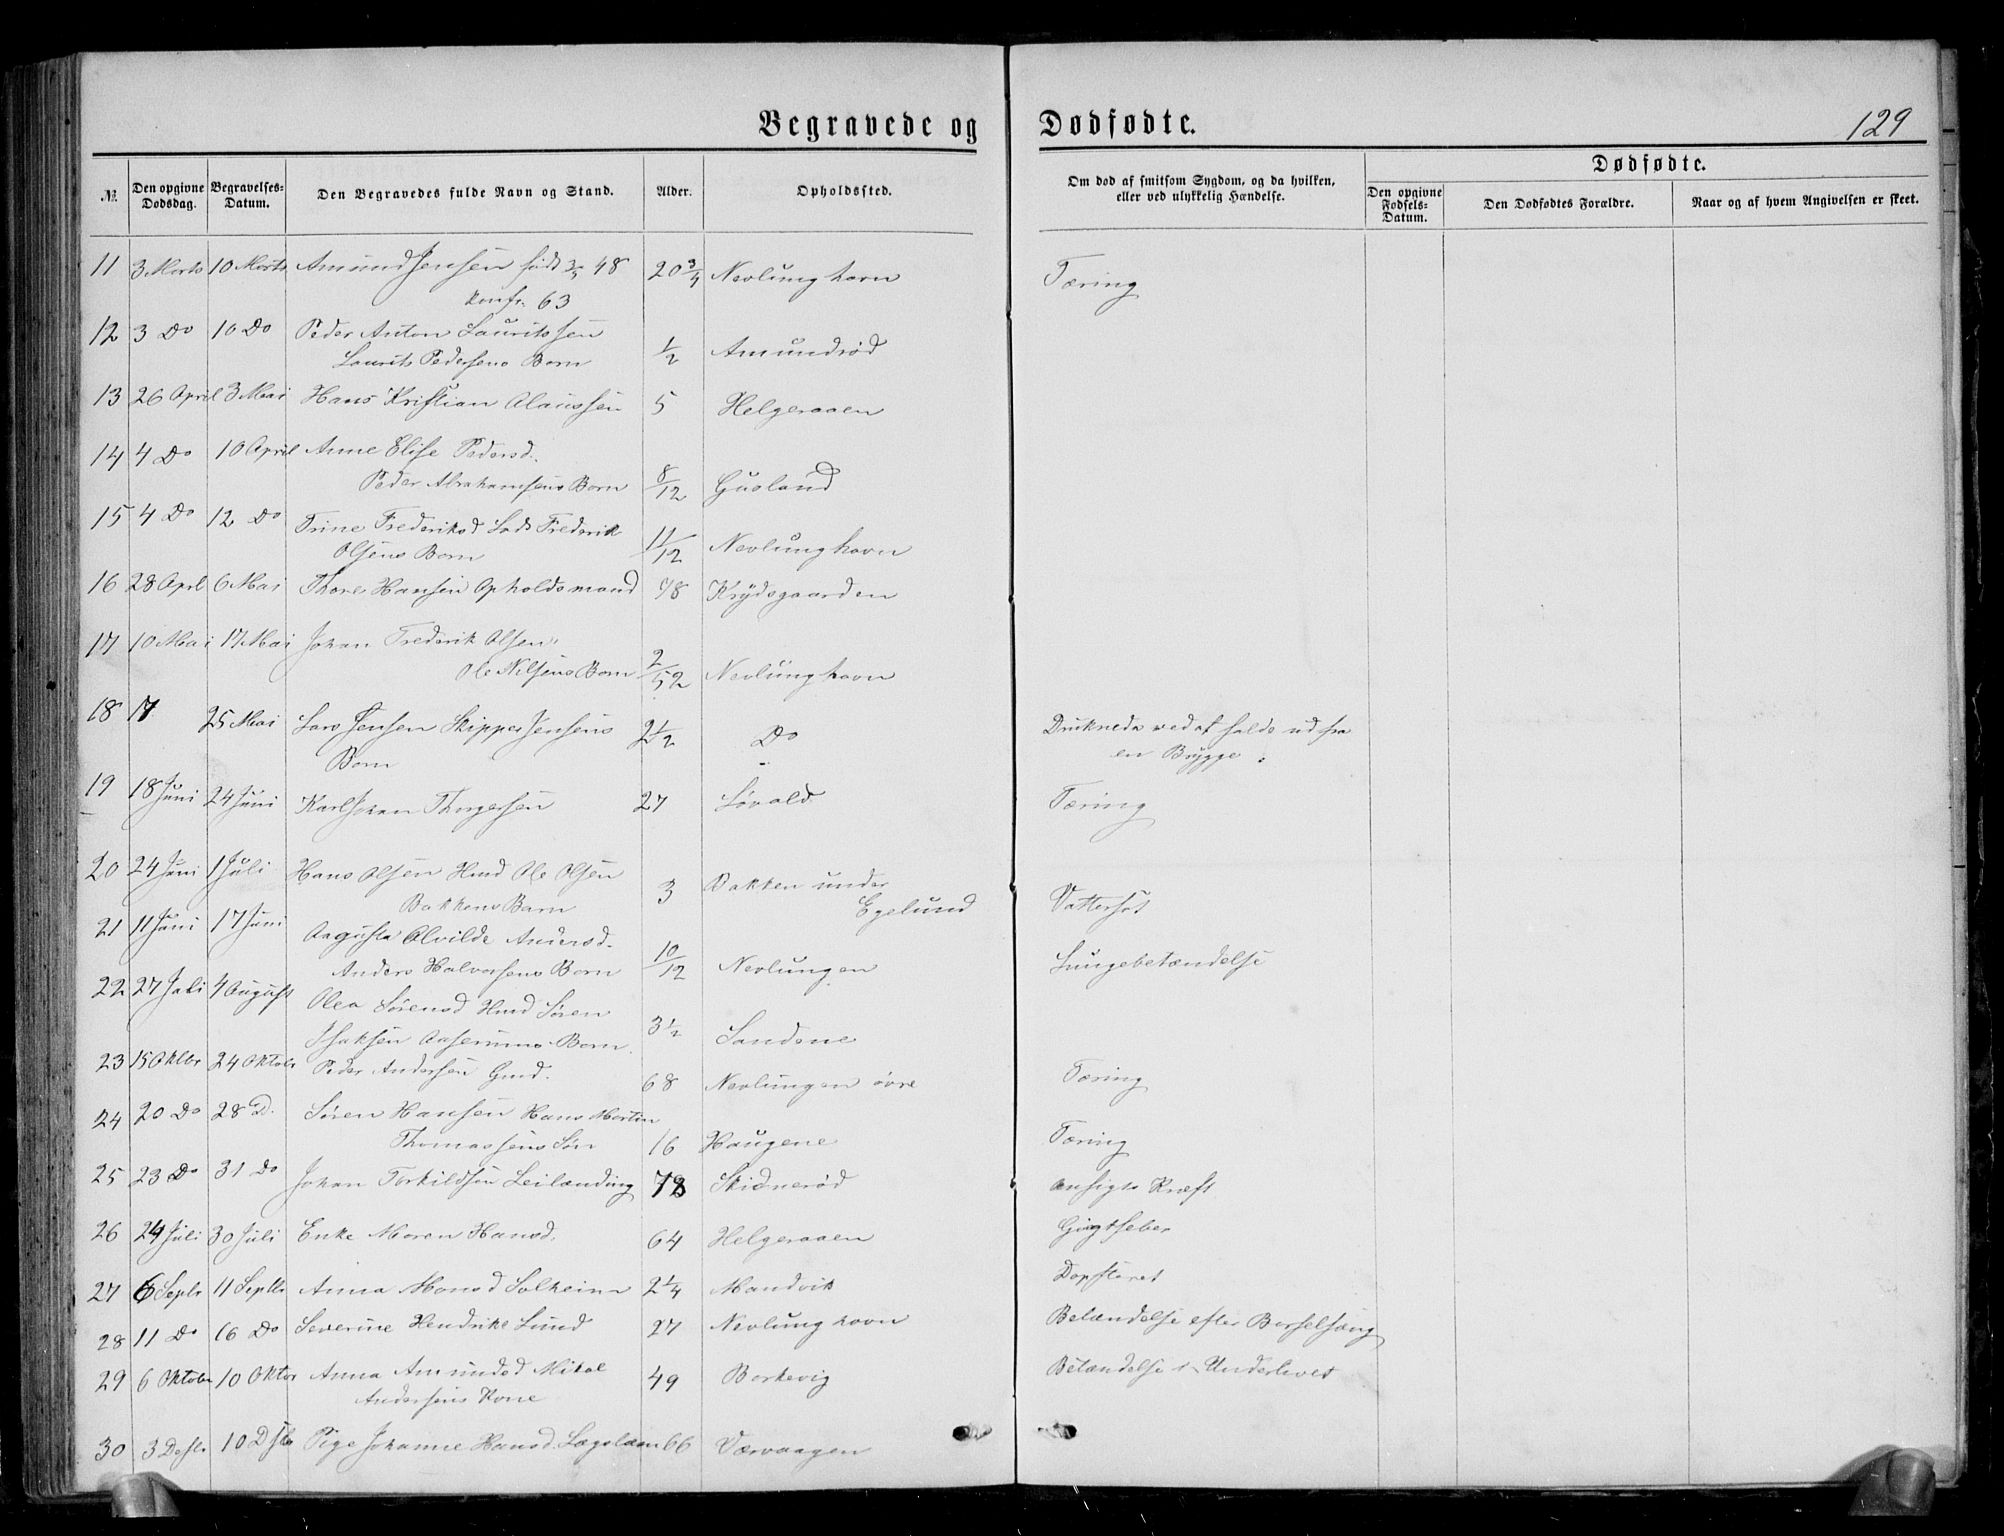 Begravede og Dødfødte. 129
№ Den opgivne Dødsdag. Begravelses-Datum. Den Begravedes fulde Navn og Stand. Alder. Opholdssted. Om død af smitsom Sygdom, og da hvilken, eller ved ulykkelig Hændelse. Dødfødte.
Den opgivne Fødsels-Datum. Den Dødfødtes Forældre. Naar og af hvem Angivelsen er skeet.
11 3 Marts 10 Marts Amund Jensen født 48 20 3/4 Nevlunghavn Tæring
konfr. 63
12 3 Do 10 Do Peder Anton Lauritssen
Laurits Pedersens Barn 1/2 Amundrød
13 26 April 3 Mai Hans Kristian Claussen 5 Helgeraaen
14 4 Do 10 April Anne Elise Pedersd.
Peder Abrahamsens Barn 8/12 Gusland
15 4 Do 12 Do Trine Frederiksd Lods Frederik
Olsens Barn 11/12 Nevlunghavn
16 28 Apri 6 Mai Thore Hansen Opholdsmand 78 Krydsgaarden
17 10 Mai 17 Mai Johan Frederik Olsen
Ole Nilsens Barn 2/52 Nevlunghavn
18 17 25 Mai Lars Jensen Skipper Jensens 2 1/2 Do Druknede ved at falde ud fra
Barn en Brygge.
19 18 Juni 24 Juni Karl Johan Thorgersen 27 Løvald Tæring
20 24 Juni 1 Juli Hans Olsen Hmd Ole Olsen
Bakkens Barn 3 Bakken under Egelund Vattersot
21 11 Juni 17 Juni Augusta Alvilde Andersd.
Anders Halvorsens Barn 10/12 Nevlungen Lungebetændelse
22 27 Juli 4 August Olea Sørensd Hmd Søren
Isaksen Aaserums Barn 3 1/2 Sandene
23 15 Oktbr 24 Oktobr Peder Andersen Gmd. 68 Nevlungen øvre Tæring
24 20 Do 28 D. Søren Hansen Hans Martin
Thomassens Søn 16 Haugene Tæring
25 23 Do 31 Do Johan Torkildsen Leilænding 78 Skidnerød Ansigts Kræft
26 24 Juli 30 Juli Enke Maren Hansd. 64 Helgeraaen Gigtfeber
27 6 Septr 11 Septbr Anna Monsd Solheim 2 1/4 Mandvik
28 11 Do 16 Do Severine Hendrike Lund 27 Nevlunghavn Betændelse efter Barselsæng
29 6 Oktobr 10 Oktbr Anna Amundsd Mikal
Andersens Kone 49 Barkevig Betændelse i Underlivet
30 3 10 Pige Johanne Hansd. 66 Værvaagen